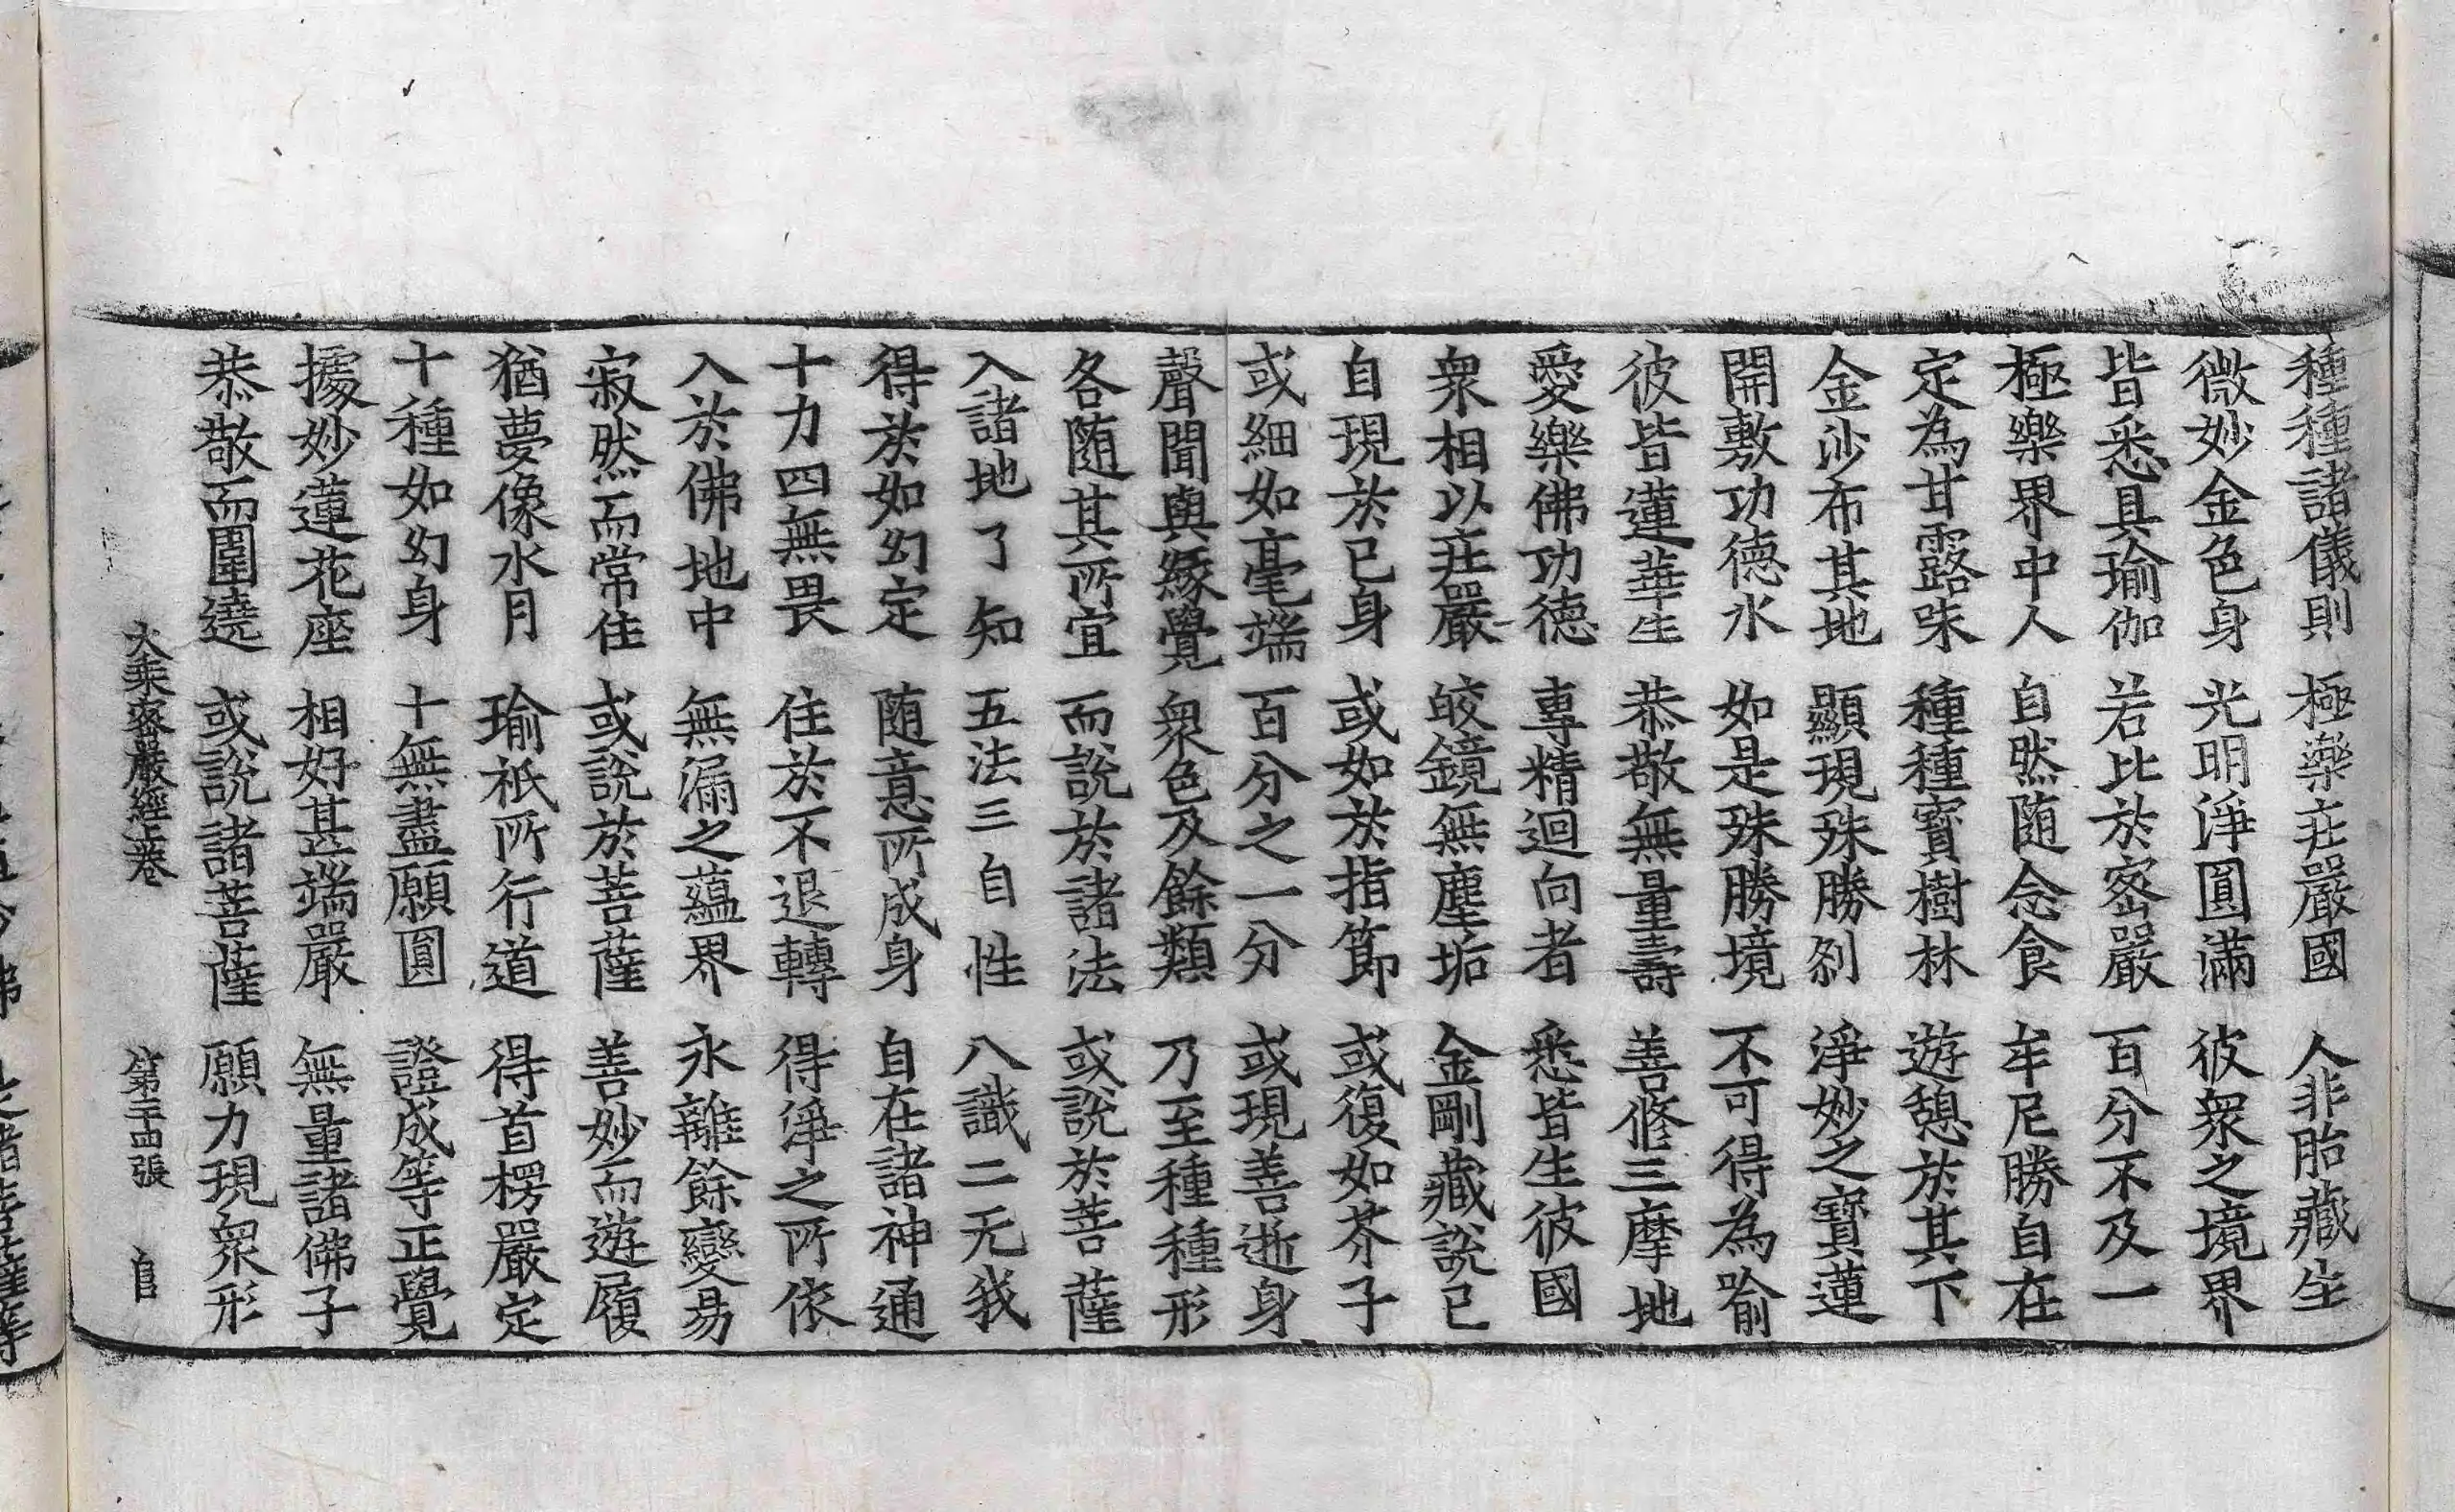 種種諸儀則　極樂莊嚴國　人非胎藏生
微妙金色身　光明淨圓滿　彼衆之境界
皆悉具瑜伽　若比於密嚴　百分不及一
極樂界中人　自然随念食　牟尼勝自在
定為甘露味　種種寳樹林　遊憩於其下
金沙布其地　顯現殊勝刹　淨妙之寶蓮
開敷功德水　如是殊勝境　不可得為喻
彼皆蓮華生　恭敬無量壽　善修三摩地
愛樂佛功德　專精迴向者　悉皆生彼國
衆相以莊嚴　皎鏡無塵垢　金剛藏說已
自現於已身　或如於指節　或復如芥子
或細如毫端　百分之一分　或現善逝身
聲聞與緣覺　衆色及餘類　乃至種種形
各随其所宜　而說於諸法　或說於菩薩
入諸地了知　五法三自性　八識二无我
得於如幻定　随意所成身　自在諸神通
十力四無畏　住於不退轉　得淨之所依
入於佛地中　無漏之蘊界　永離餘變易
寂然而常住　或說於菩薩　善妙而遊履
猶夢像水月　瑜祇所行道　得首楞嚴定
十種如幻身　十無盡願圓　證成等正覺
據妙蓮花座　相好甚端嚴　無量諸佛子
恭敬而圍遶　或說諸菩薩　願力現衆形
大乘密嚴經上卷　第二十四張　自